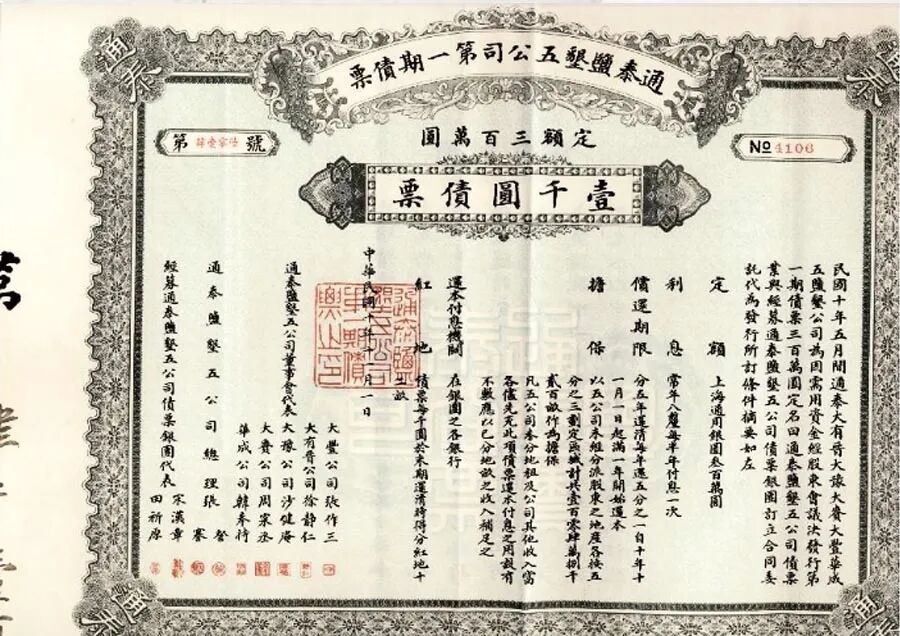 通泰鹽墾五公司第一期債票
定額三百萬圓
№4106
第 號
壹千圓債票
民國十年五月間通泰大有晉大豫大賚大豐華成
五鹽墾公司為因需用資金經股東會議決發行第
一期債票三百萬圓定名曰通泰鹽墾五公司債票
業與經募通泰鹽墾五公司債票銀團訂立合同委
託代為發行所訂條件摘要如左
定額 上海通用銀圓叁百萬圓
利息 常年八釐每半年付息一次
償還期限 分五年還清每年還五分之一自十年十
一月一日起滿一年開始還本
擔保 以五公司未經分派股東之地產各按五
分之三劃定區域計共壹百零肆萬捌千
貳百畝作為擔保
凡五公司未分地租及公司其他收入當
各儘先充此項債票還本付息之用設有
不敷應以已分地畝之收入補足之
還本付息機關 在銀團之各銀行
紅地 債票每千圓於末期還清時得分紅地十
二畝
中華民國十年十一月一日
通泰鹽墾五公司董事會代表
大豐公司張作三
大有晉公司徐靜仁
大豫公司沙健庵
大賚公司周泉丞
華成公司韓奉持
通泰鹽墾五公司總理張詧
張謇
經募通泰鹽墾五公司債票銀團代表 宋漢章
田祈原
通泰
通泰
通泰
通泰